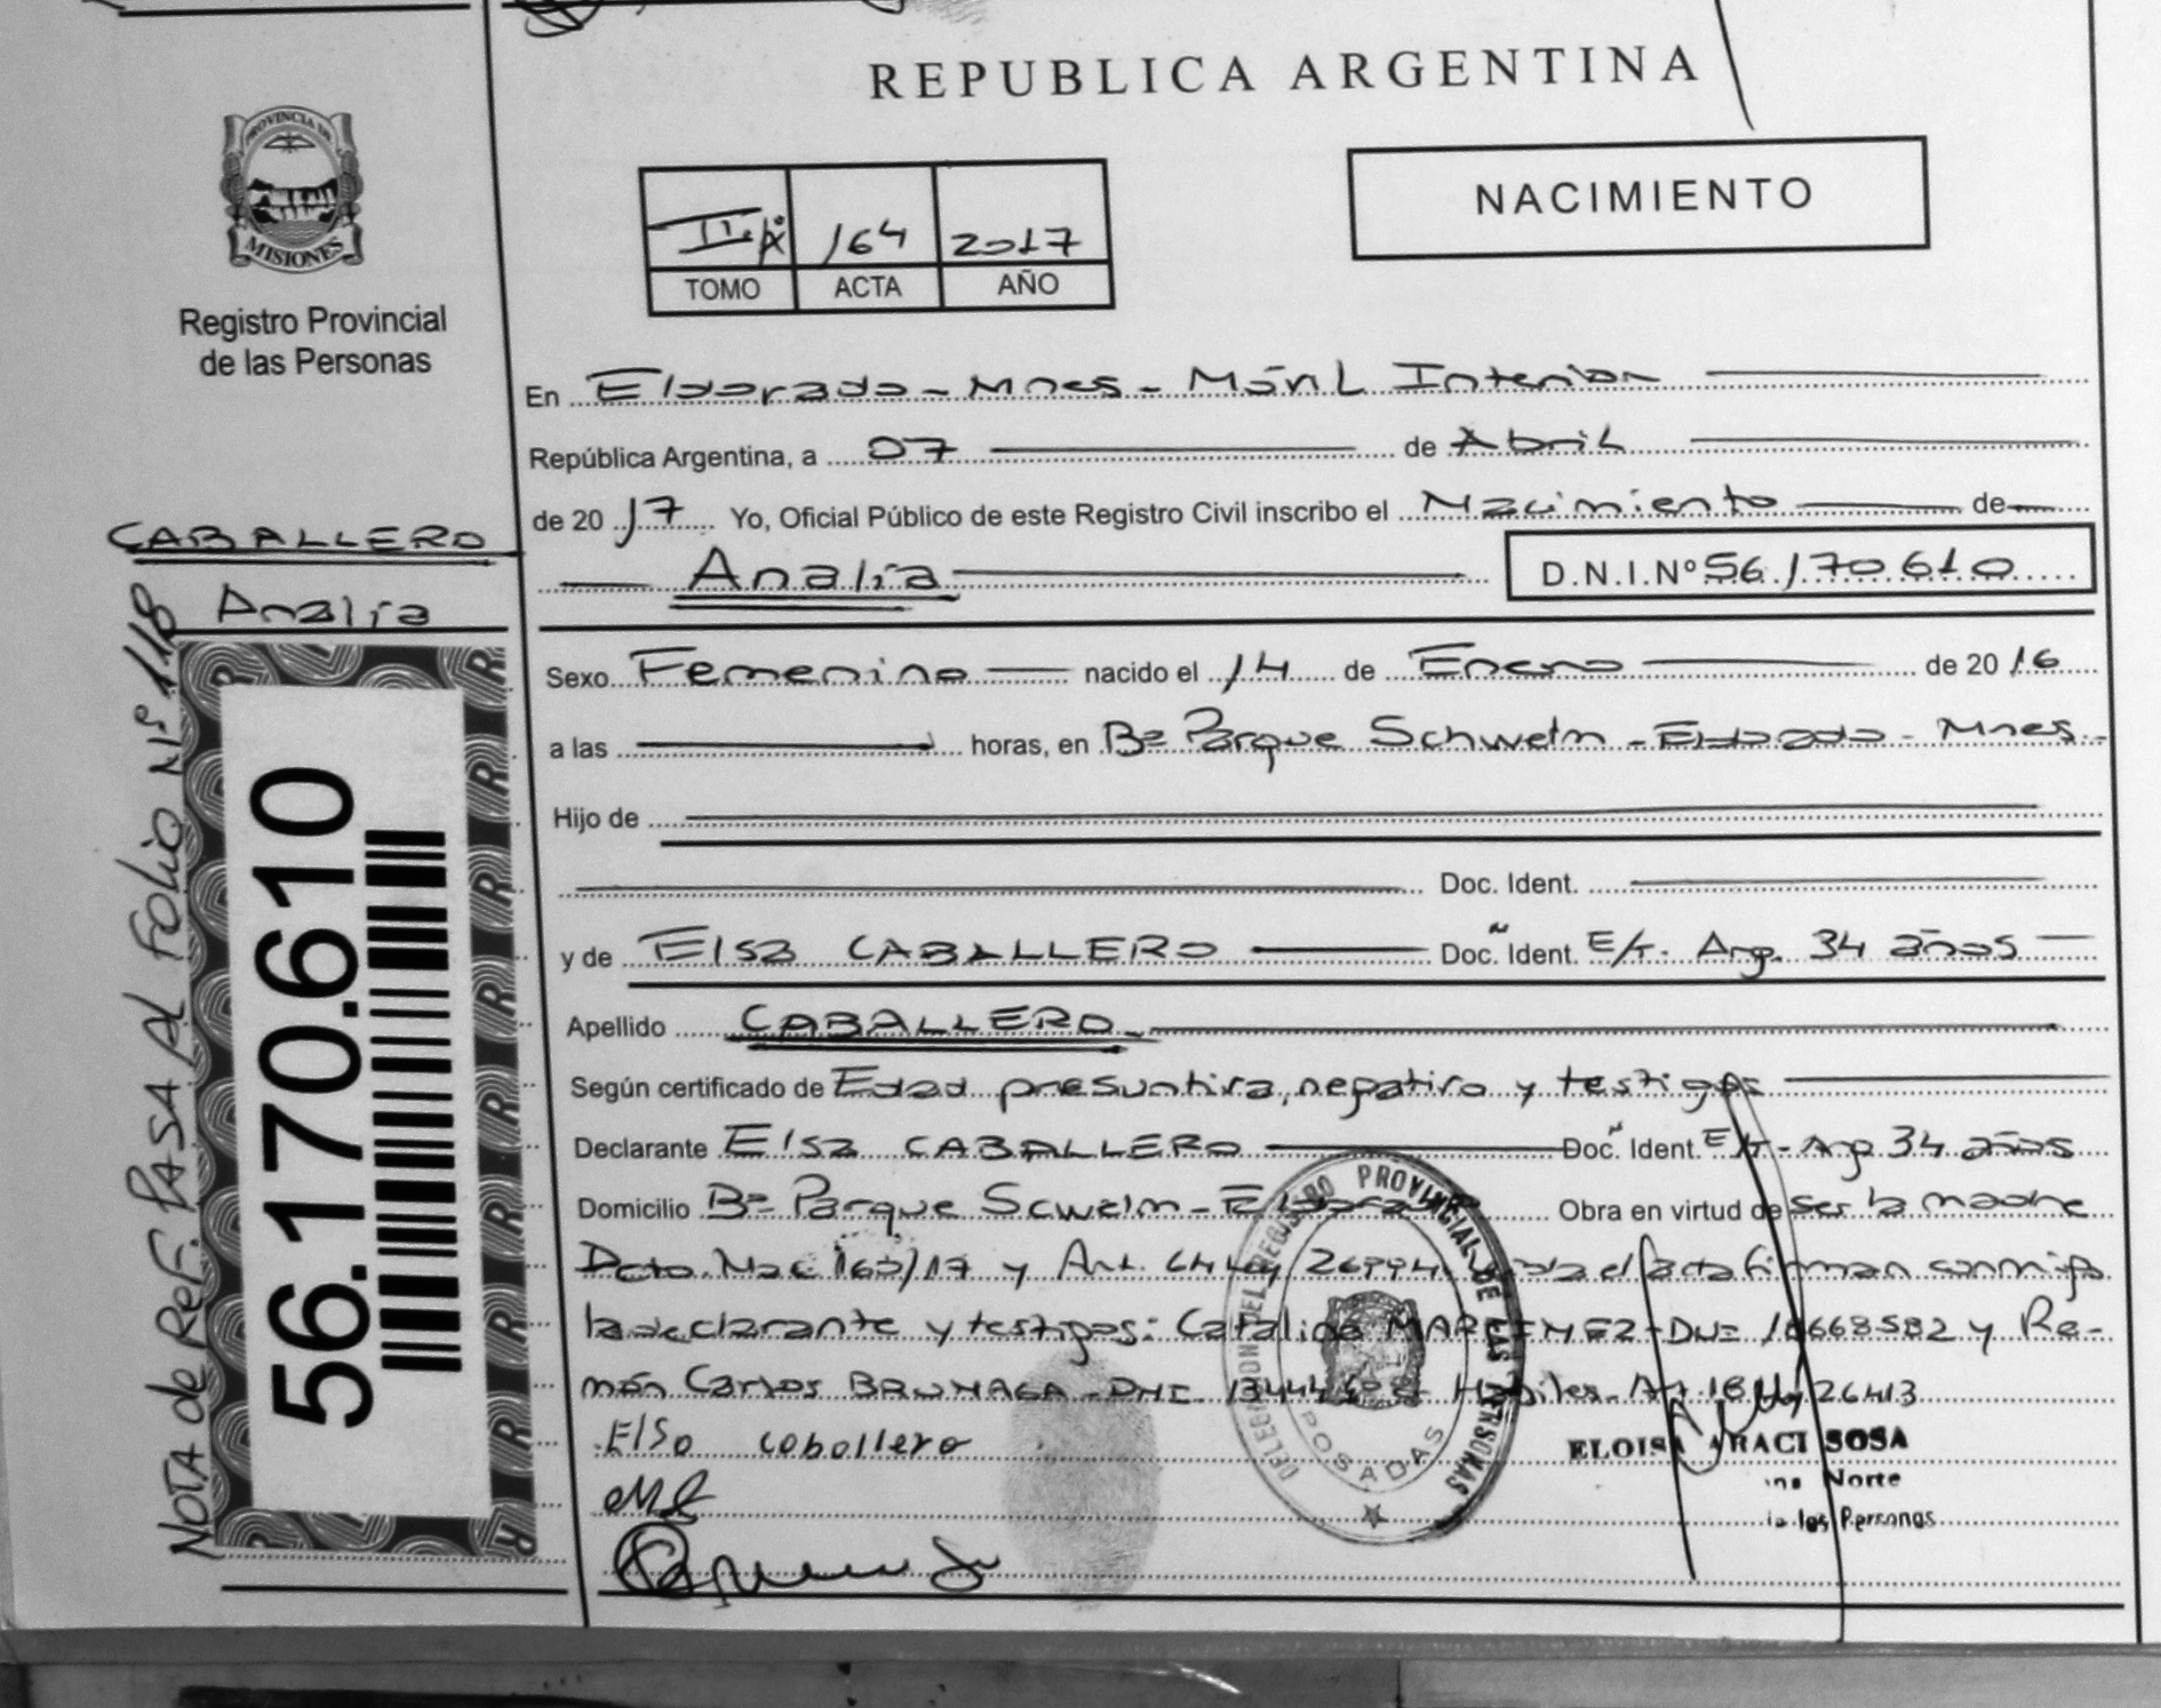 REPUBLICA ARGENTINA
PROVINCIA DE
MISIONES
Registro Provincial
de las Personas
NACIMIENTO
164 2017
TOMO ACTA AÑO
En Eldorado - Mnes - Móvil Interior
República Argentina, a 07 de Abril
de 20 17 Yo, Oficial Público de este Registro Civil inscribo el Nacimiento de
Analía D.N.I.Nº 56.170.610
CABALLERO
Analía
NOTA de REF. PASA AL Folio Nº 118
56.170.610
Sexo Femenino nacido el 14 de Enero de 20 16
a las horas, en Bº Parque Schwelm - Eldorado - Mnes.
Hijo de
Doc. Ident.
y de Elsa CABALLERO Doc. Ident. E/T. Arg. 34 años
Apellido CABALLERO
Según certificado de Edad presuntiva, negativo y testigos
Declarante Elsa CABALLERO Doc. Ident. E/T - Arg 34 años
Domicilio Bº Parque Scwelm - Obra en virtud de ser la madre
Dcto. Nac 160/17 y Art. Ley el acta firman conmigo
la declarante y testigos: Catalina DNI y Ra-
món Carlos DNI Hábiles - Art 18 Ley 26413
DELEGACION DEL REGISTRO PROVINCIAL DE LAS PERSONAS
POSADAS
Elsa Caballero
ELOISA ARACI SOSA
Norte
las Personas